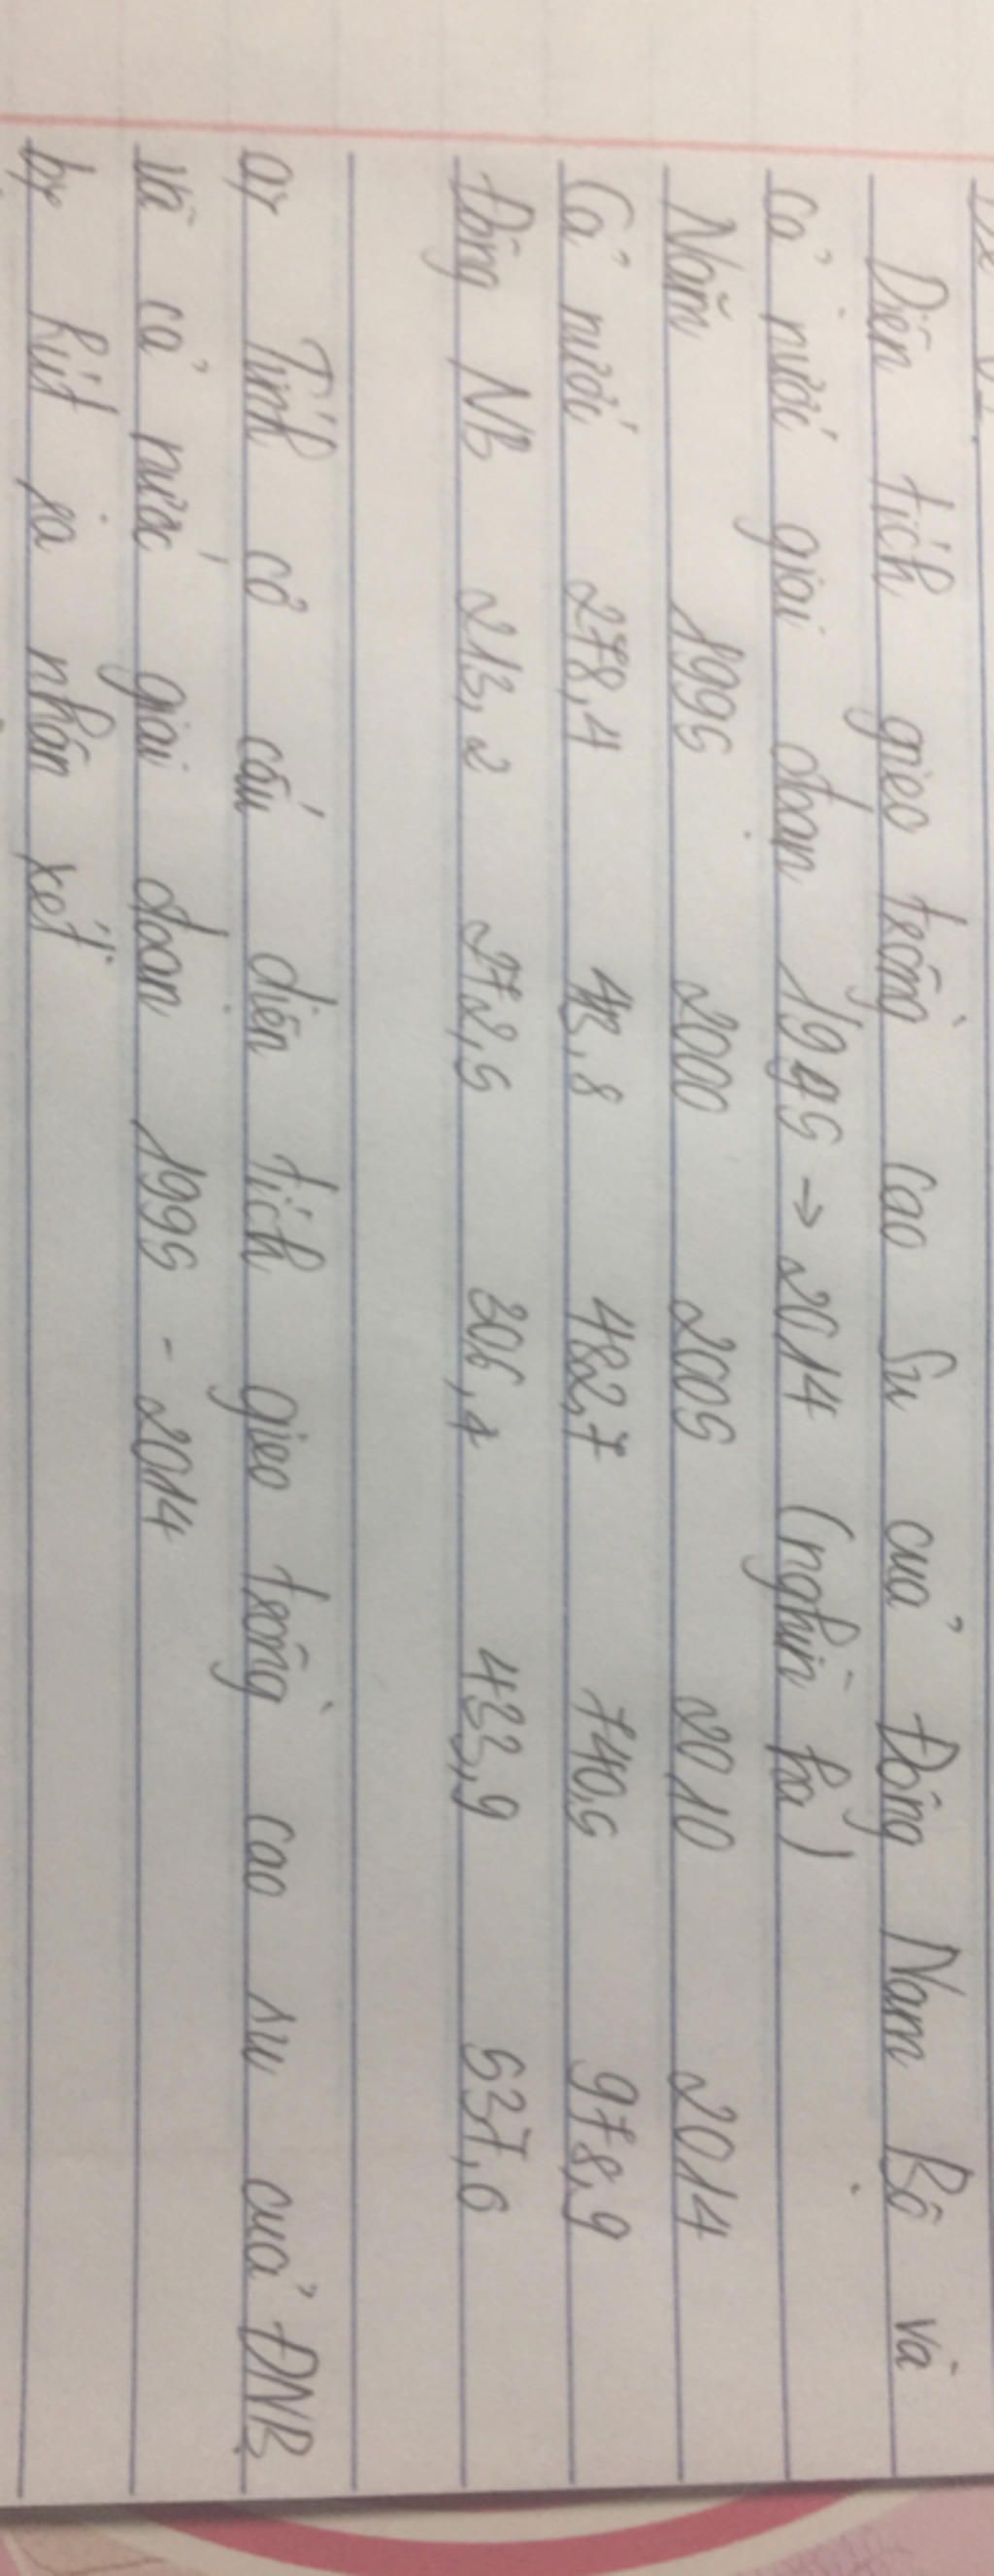 Diện tích gieo trồng cao su của Đông Nam Bộ và
cả nước giai đoạn 1995 → 2014 (nghìn ha)
Năm 1995 2000 2005 2010 2014
Cả nước 278,4 413,8 482,7 740,5 978,9
Đông NB 213,2 272,5 306,4 433,9 537,6
a, Tính cơ cấu diện tích gieo trồng cao su của ĐNB
và cả nước giai đoạn 1995 - 2014
b, hút ra nhận xét